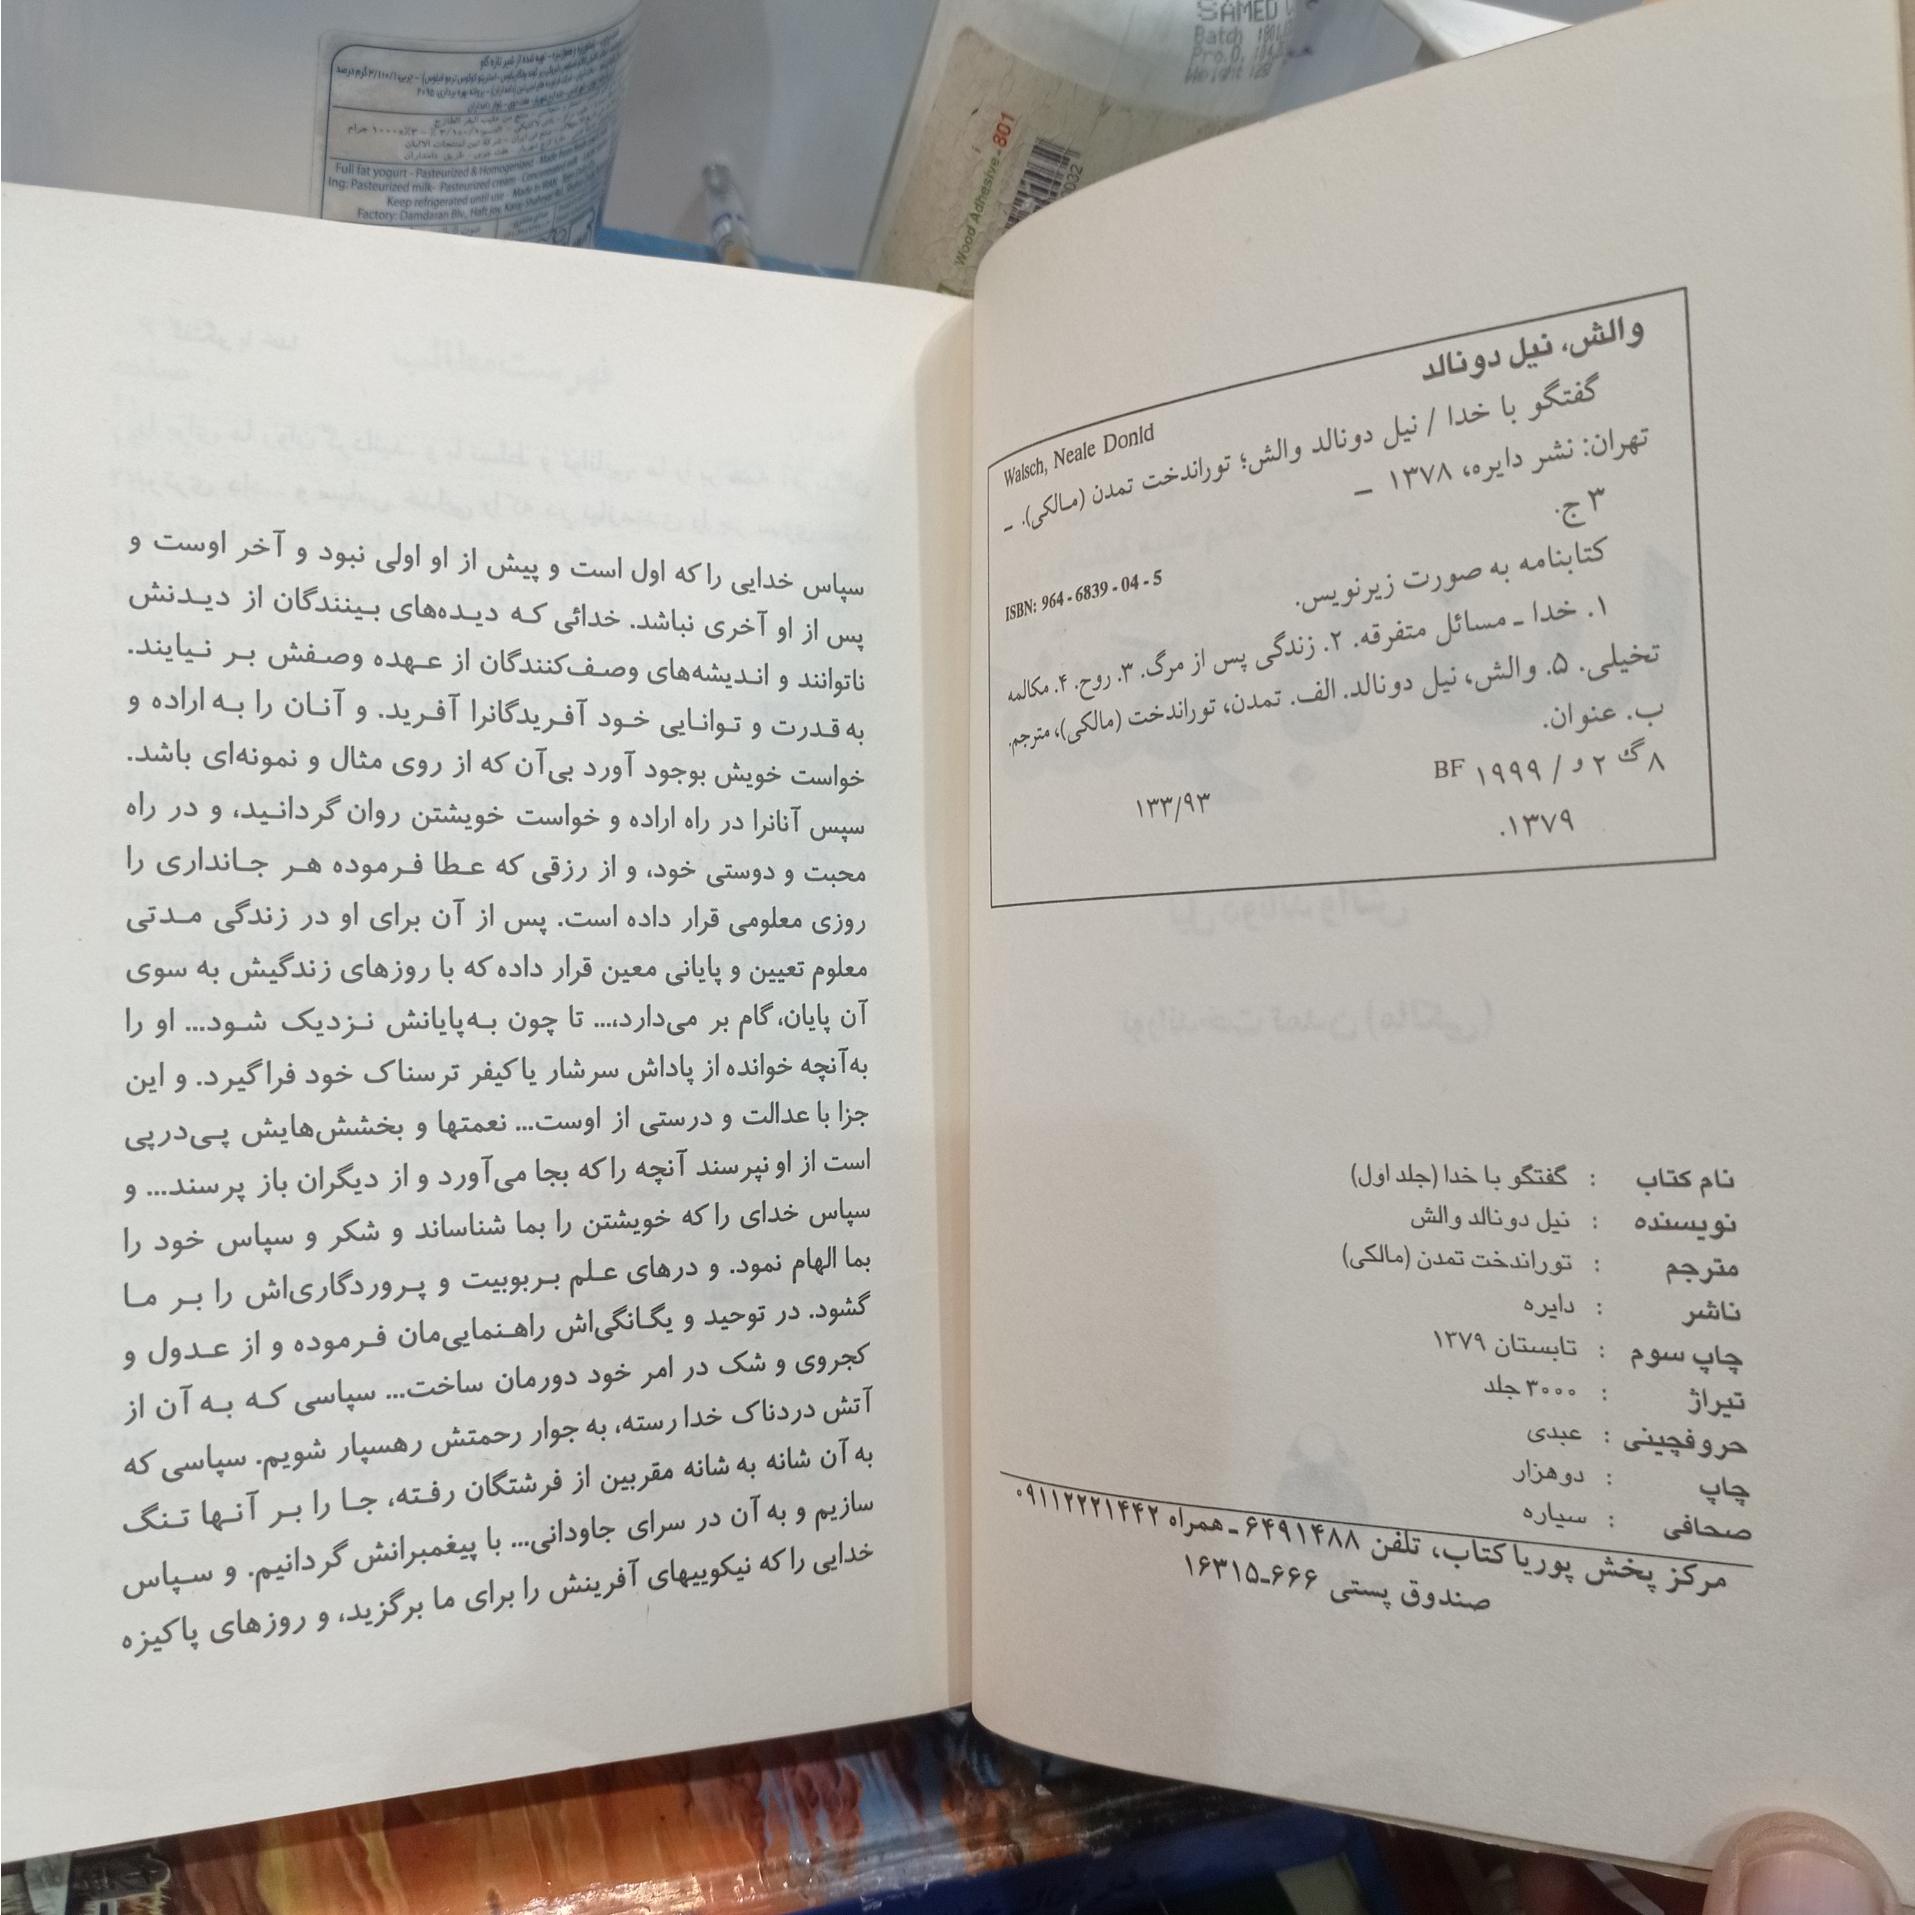 والش، نیل دونالد
Walsch, Neale Donld
گفتگو با خدا / نیل دونالد والش؛ توراندخت تمدن (مالکی). ـ
تهران: نشر دایره، ۱۳۷۸ ـ
۳ ج.
ISBN: 964 - 6839 - 04 - 5
کتابنامه به صورت زیرنویس.
۱. خدا ـ مسائل متفرقه. ۲. زندگی پس از مرگ. ۳. روح. ۴. مکالمه
تخیلی. ۵. والش، نیل دونالد. الف. تمدن، توراندخت (مالکی)، مترجم.
ب. عنوان.
۸ گ ۲ و / ۱۹۹۹ BF
۱۳۳/۹۳
۱۳۷۹.
نام کتاب : گفتگو با خدا (جلد اول)
نویسنده : نیل دونالد والش
مترجم : توراندخت تمدن (مالکی)
ناشر : دایره
چاپ سوم : تابستان ۱۳۷۹
تیراژ : ۳۰۰۰ جلد
حروفچینی : عبدی
چاپ : دوهزار
صحافی : سیاره
مرکز پخش پوریا کتاب، تلفن ۶۴۹۱۴۸۸ ـ همراه ۰۹۱۱۲۲۲۱۴۴۲
صندوق پستی ۶۶۶ـ۱۶۳۱۵
سپاس خدایی را که اول است و پیش از او اولی نبود و آخر اوست و
پس از او آخری نباشد. خدائی که دیده‌های بینندگان از دیدنش
ناتوانند و اندیشه‌های وصف‌کنندگان از عهده وصفش بر نیایند.
به قدرت و توانایی خود آفریدگانرا آفرید. و آنان را به اراده و
خواست خویش بوجود آورد بی‌آن که از روی مثال و نمونه‌ای باشد.
سپس آنانرا در راه اراده و خواست خویشتن روان گردانید، و در راه
محبت و دوستی خود، و از رزقی که عطا فرموده هر جانداری را
روزی معلومی قرار داده است. پس از آن برای او در زندگی مدتی
معلوم تعیین و پایانی معین قرار داده که با روزهای زندگیش به سوی
آن پایان، گام بر می‌دارد،... تا چون به‌پایانش نزدیک شود... او را
به‌آنچه خوانده از پاداش سرشار یا کیفر ترسناک خود فراگیرد. و این
جزا با عدالت و درستی از اوست... نعمتها و بخشش‌هایش پی‌درپی
است از او نپرسند آنچه را که بجا می‌آورد و از دیگران باز پرسند... و
سپاس خدای را که خویشتن را بما شناساند و شکر و سپاس خود را
بما الهام نمود. و درهای علم بربوبیت و پروردگاری‌اش را بر ما
گشود. در توحید و یگانگی‌اش راهنمایی‌مان فرموده و از عدول و
کجروی و شک در امر خود دورمان ساخت... سپاسی که به آن از
آتش دردناک خدا رسته، به جوار رحمتش رهسپار شویم. سپاسی که
به آن شانه به شانه مقربین از فرشتگان رفته، جا را بر آنها تنگ
سازیم و به آن در سرای جاودانی... با پیغمبرانش گردانیم. و سپاس
خدایی را که نیکوییهای آفرینش را برای ما برگزید، و روزهای پاکیزه
Full fat yogurt - Pasteurized & Homogenized
Ing: Pasteurized milk- Pasteurized cream
Keep refrigerated until use
Factory: Damdaran Blv.,
SAMED
Batch
Pro.D.
Wood Adhesive - 801